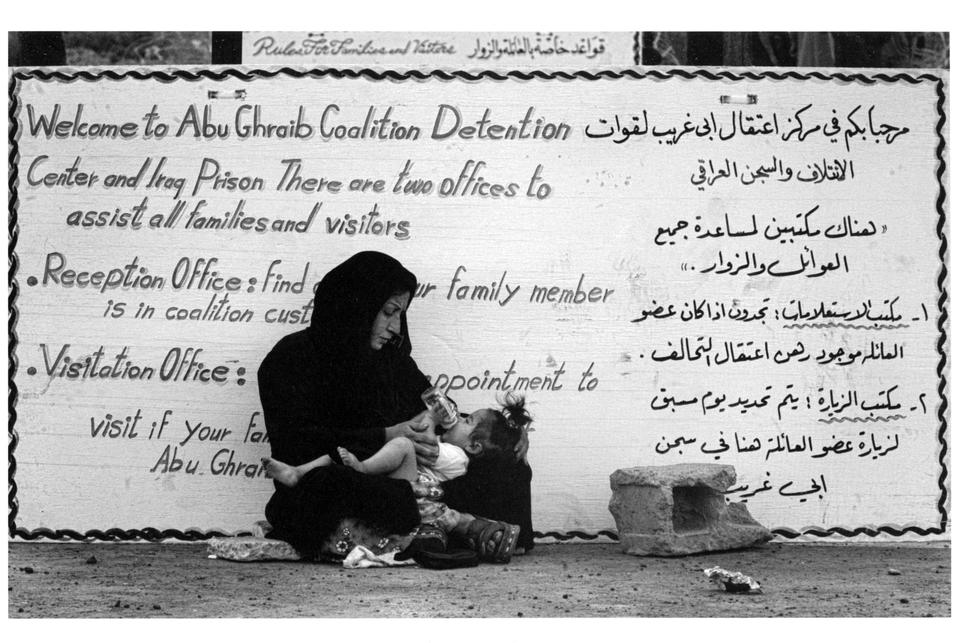 Rules For Families and Visitors
قواعد خاصة بالعائلة والزوار
Welcome to Abu Ghraib Coalition Detention
Center and Iraq Prison There are two offices to
assist all families and visitors
• Reception Office: find ur family member
is in coalition cust
• Visitation Office: appointment to
visit if your fam
Abu Ghrai
مرحبا بكم في مركز اعتقال ابي غريب لقوات
الائتلاف والسجن العراقي
« هناك مكتبين لمساعدة جميع
العوائل والزوار . »
١- مكتب الاستعلامات : تجدون اذا كان عضو
العائلة موجود رهن اعتقال التحالف .
٢- مكتب الزيارة : يتم تحديد يوم مسبق
لزيارة عضو العائلة هنا في سجن
ابي غريب